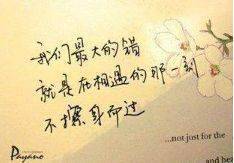 我们最大的错
就是在相遇的那一刻
不擦身而过
...not just for the
and her
Payano